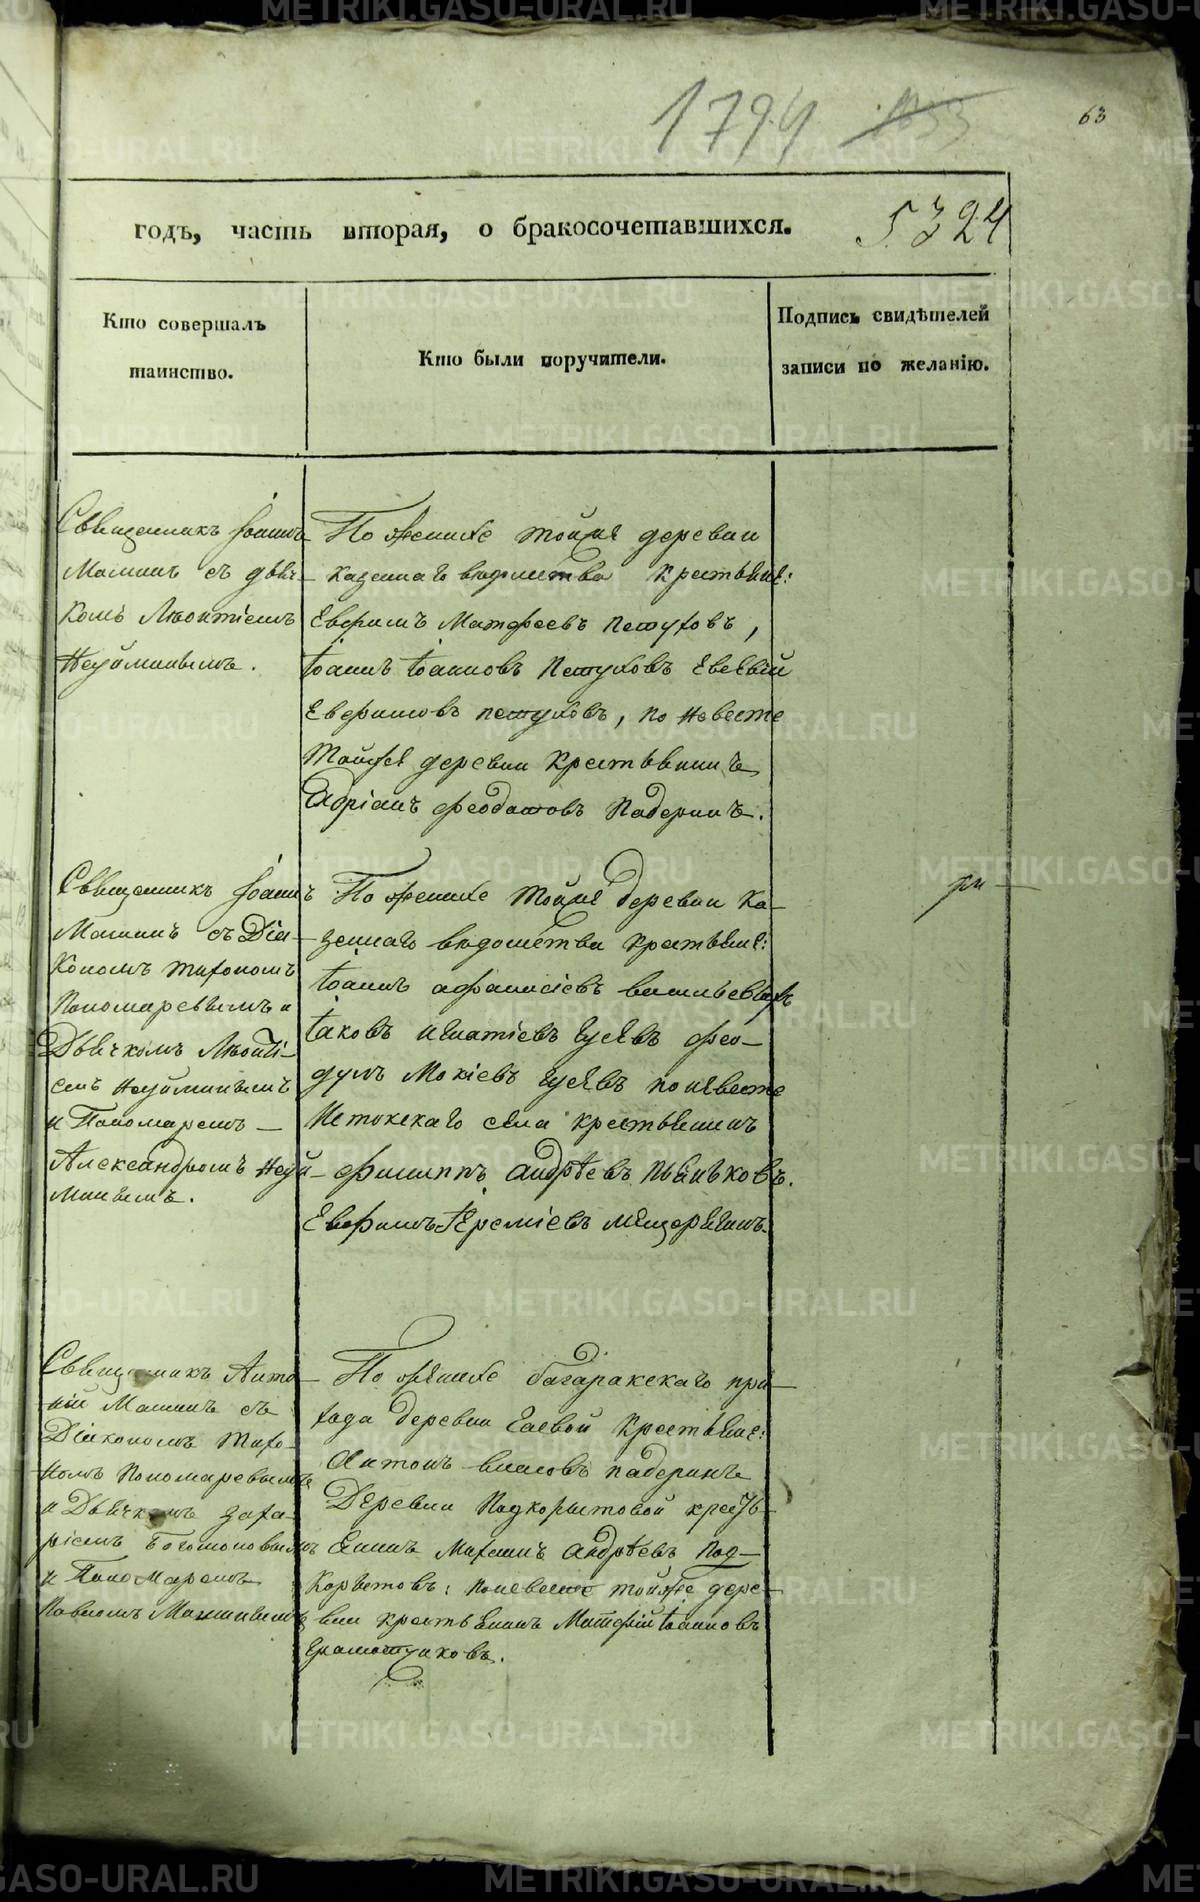 1794 1033
63
годъ, часть вторая, о бракосочетавшихся.
5324
Кто совершалъ
таинство.
Кто были поручители.
Подпись свидѣтелей
записи по желанію.
Священникъ Іоаннъ
Маминъ съ дьяч-
комъ Леонтіемъ
Неуйминымъ.
По женихе тойже деревни
казеннаго вѣдомства крестьяне:
Евфимъ Матфеевъ Петуховъ,
Іоаннъ Іоанновъ Петуховъ
Евфимовъ петуховъ, по невесте
тойже деревни крестьянинъ
Адріанъ феодотовъ Падеринъ.
Священникъ Іоаннъ
Маминъ съ Діа-
кономъ тихономъ
Пономаревымъ и
Дьячкомъ Леонті-
емъ Неуйминымъ
и Пономаремъ
Александромъ Неуй-
минымъ.
По женихе тойже деревни ка-
зеннаго вѣдомства крестьяне:
Іоаннъ афанасіевъ
Іаковъ игнатіевъ гусевъ фео-
дулъ Мокіевъ гусевъ по невесте
Истокскаго села крестьянинъ
филиппъ андрѣевъ пьянковъ.
Евфимъ Іереміевъ мещерягинъ.
Священникъ Анто-
ній Маминъ съ
Діакономъ тихо-
номъ Пономаревымъ
и Дьячкомъ заха-
ріемъ Богомоловымъ
и Пономаремъ
Павломъ
По женихе багаракскаго при-
хода деревни Гаевой крестьяне:
Антонъ власовъ падеринъ
Деревни Подкорытовой кресть-
янинъ Михаилъ андрѣевъ Под-
корытовъ; поневесте тойже дере-
вни крестьянинъ Матфій Іоанновъ
METRIKI.GASO-URAL.RU